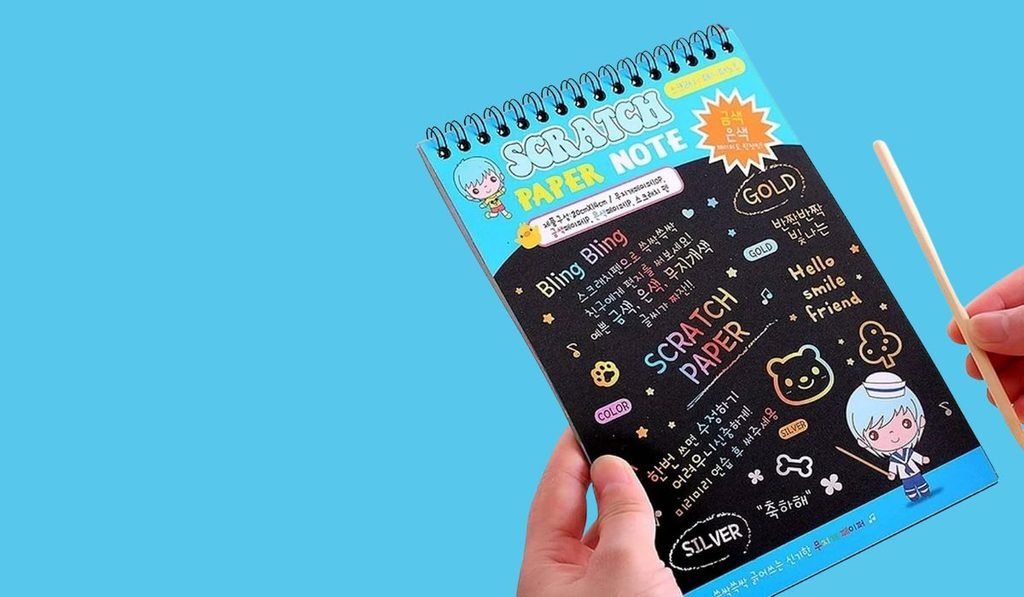 SCRATCH
PAPER NOTE
금색
은색
제품구성:20cmX14cm / 무지개페이퍼10P,
금색페이퍼1P, 은색페이퍼1P, 스크래치 펜
GOLD
반짝반짝
빛나는
GOLD
Bling Bling
스크래치펜으로 쓱싹쓱싹
친구에게 편지를 써보세요!
예쁜 금색, 은색, 무지개색
글씨가 짜잔!!
Hello
smile
friend
SCRATCH
PAPER
COLOR
SILVER
한번 쓰면 수정하기
어려우니 신중하게!!
미리미리 연습 후 써주세용
"축하해"
SILVER
쓱싹쓱싹 긁어쓰는 신기한 무지개페이퍼